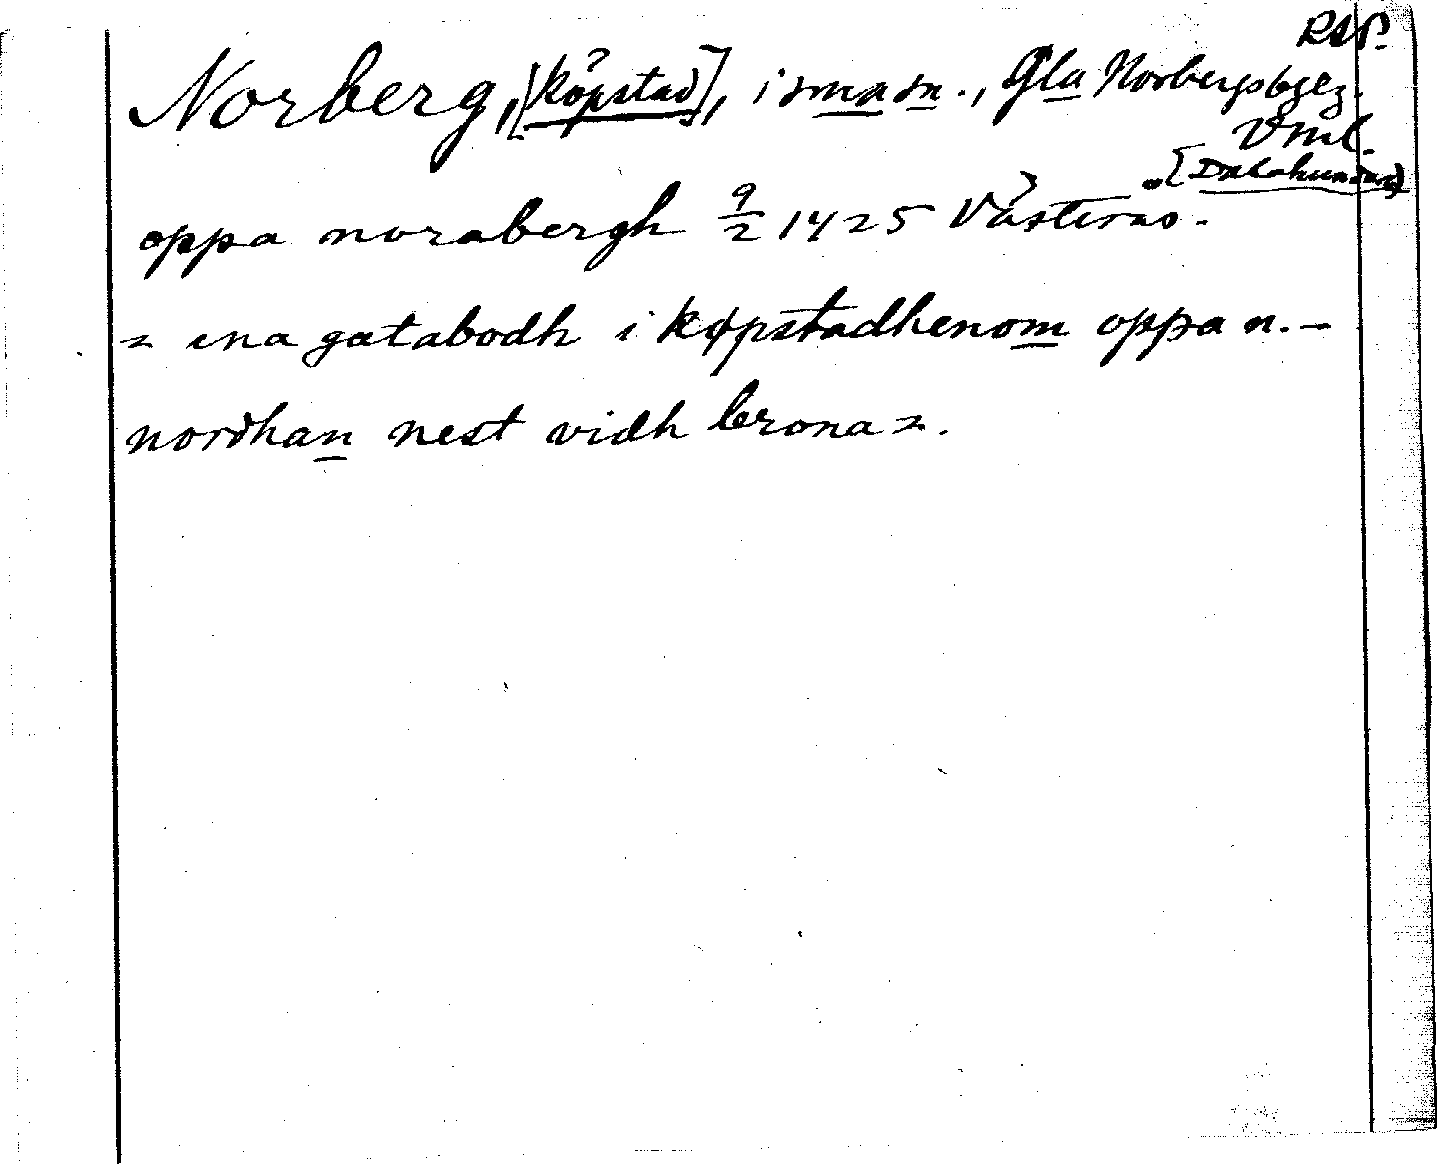 RAP.
Norberg, [köpstad], i smn o sn., Gla Norbergs bgsz.
Vml.
[Dalahundare]
oppa norabergh 9/2 1425 Västerås.
= ena gatabodh i køpstadhenom oppa n. –
nordhan nest vidh brona =.